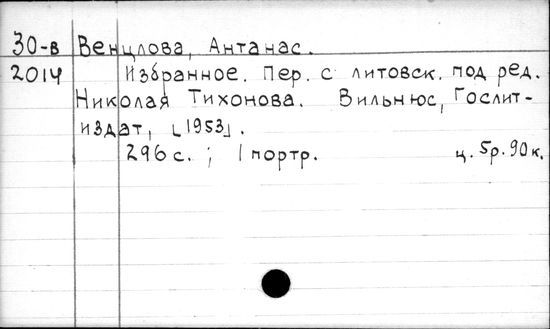 30-в Венцлова, Антанас.
2014 Избранное. Пер. с литовск. под ред.
Николая Тихонова. Вильнюс, Гослит-
издат, [1953].
296 с. ; 1 портр. ц. 5р. 90к.